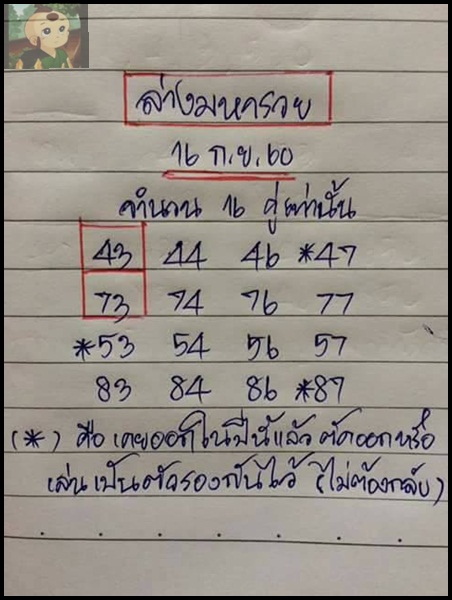 ล่างมหารวย
16 ก.ย. 60
จำนวน 16 คู่เท่านั้น
43 44 46 *47
73 74 76 77
*53 54 56 57
83 84 86 *87
(*) คือ เคยออกในปีนี้แล้ว ตัดออกหรือ
เล่นเป็นตัวรองกันไว้ (ไม่ต้องกลับ)